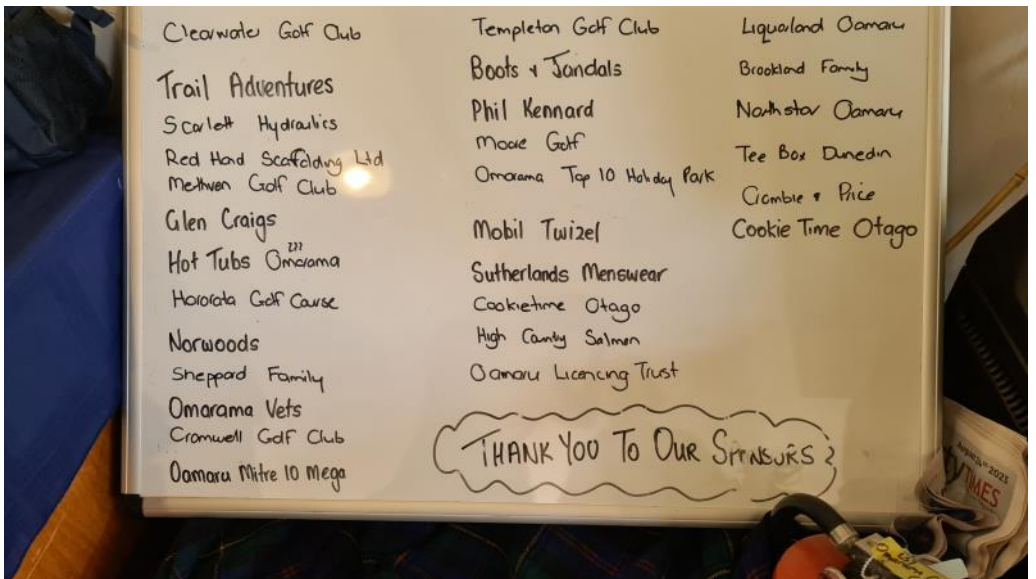 Clearwater Golf Club
Trail Adventures
Scarlett Hydraulics
Red Hand Scaffolding Ltd
Methven Golf Club
Glen Craigs
Hot Tubs Omarama
Hororata Golf Course
Norwoods
Sheppard Family
Omarama Vets
Cromwell Golf Club
Oamaru Mitre 10 Mega
Templeton Golf Club
Boots & Jandals
Phil Kennard
Moore Golf
Omarama Top 10 Holiday Park
Mobil Twizel
Sutherlands Menswear
Cookietime Otago
High County Salmon
Oamaru Licencing Trust
THANK YOU TO OUR SPONSORS
Liquorland Oamaru
Brookland Family
Northstar Oamaru
Tee Box Dunedin
Crombie & Price
Cookie Time Otago
TIMES